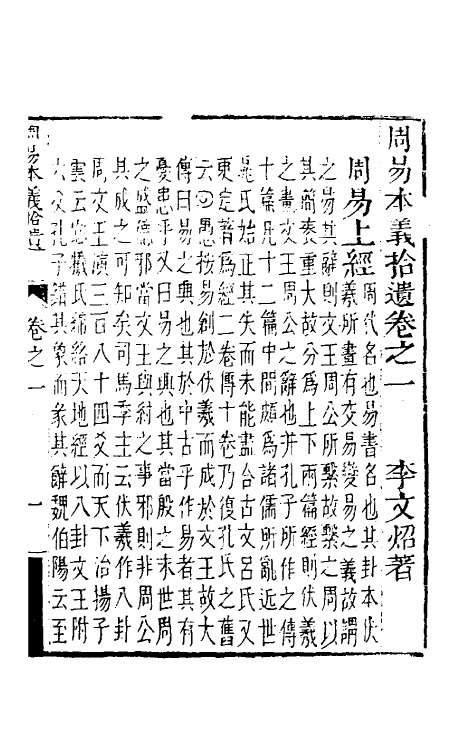 周易本義拾遺卷之一 李文炤著
周易上經
周代名也易書名也其卦本伏
羲所畫有交易變易之義故謂
之易其辭則文王周公所繫故繫之周以
其簡袠重大故分爲上下兩篇經則伏羲
之畫文王周公之辭也并孔子所作之傳
十篇凡十二篇中間頗爲諸儒所亂近世
晁氏始正其失而未能盡合古文呂氏又
更定著爲經二卷傳十卷乃復孔氏之舊
云○愚按易創於伏羲而成於文王故大
傳曰易之興也其於中古乎作易者其有
憂患乎又曰易之興也其當殷之末世周
之盛德邪當文王與紂之事邪則非周公
其成之可知矣司馬季主云伏羲作八卦
周文王演三百八十四爻而天下治揚子
雲云宓犧氏綿絡天地經以八卦文王附
六爻孔子錯其象而彖其辭魏伯陽云至
周易本義拾遺 卷之一 一